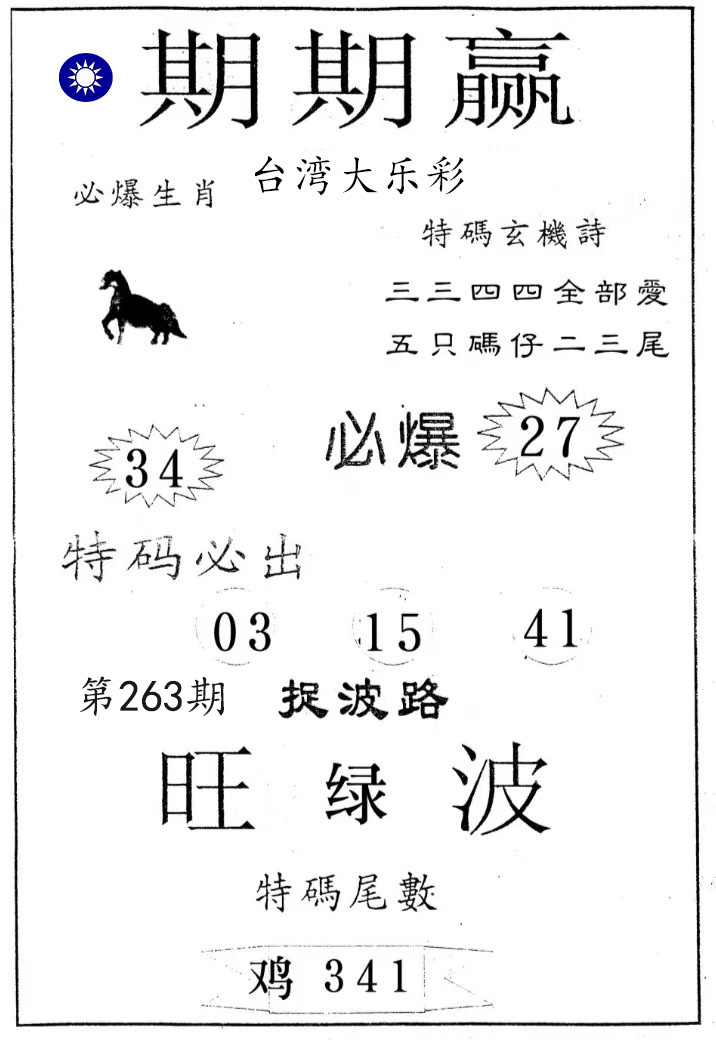 期期赢
台湾大乐彩
必爆生肖
特碼玄機詩
三三四四全部愛
五只碼仔二三尾
必爆 27
34
特码必出
03 15 41
第263期 捉波路
旺绿波
特碼尾數
鸡 341